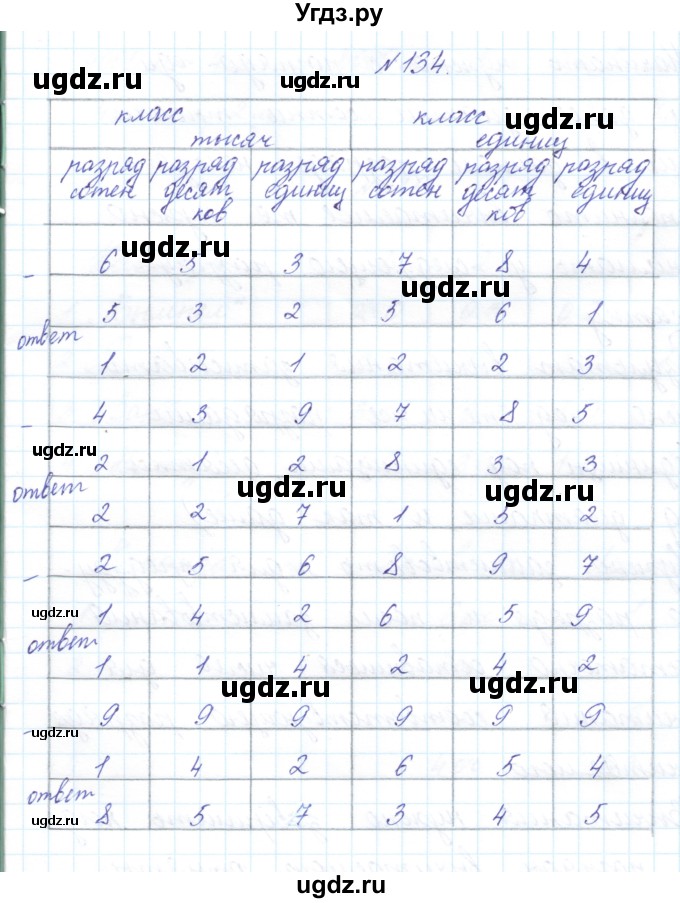 Угдз.ру
№134.
ugdz.ru ugdz.ru
класс тысяч класс единиц
ugdz.ru
разряд сотен разряд десят ков разряд единиц разряд сотен разряд десят ков разряд единиц
ugdz.ru
- 6 5 3 7 8 4
ugdz.ru
5 3 2 5 6 1
ответ 1 2 1 2 2 3
- 4 3 9 7 8 5
ugdz.ru
2 1 2 8 3 3
ugdz.ru ugdz.ru
ответ 2 2 7 1 5 2
- 2 5 6 8 9 7
ugdz.ru
1 4 2 6 5 9
ответ 1 1 4 2 4 2
ugdz.ru ugdz.ru
- 9 9 9 9 9 9
ugdz.ru
1 4 2 6 5 4
ответ 8 5 7 3 4 5
ugdz.ru
ugdz.ru